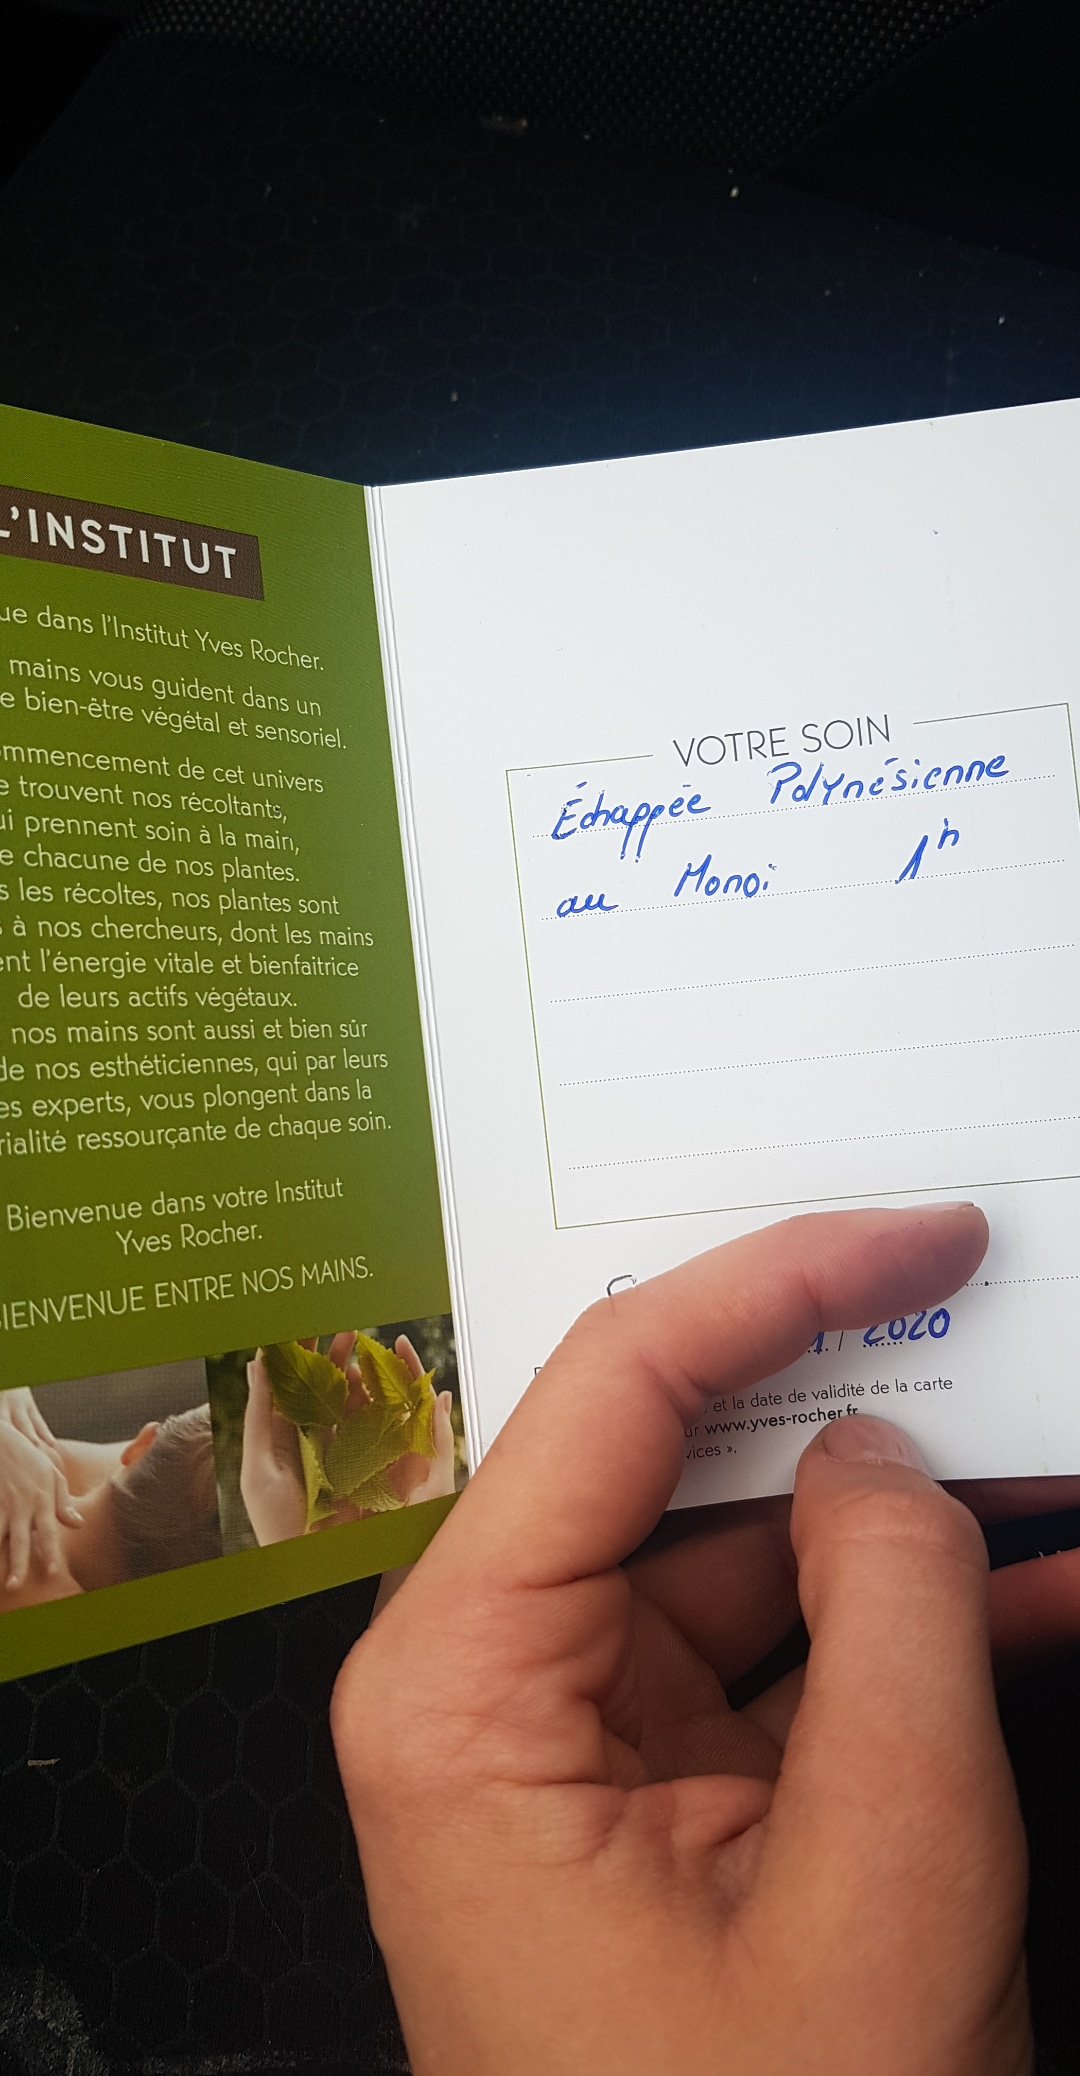 L'INSTITUT
dans l'Institut Yves Rocher.
mains vous guident dans un
bien-être végétal et sensoriel.
de cet univers
trouvent nos récoltants,
prennent soin à la main,
chacune de nos plantes.
les récoltes, nos plantes sont
à nos chercheurs, dont les mains
l'énergie vitale et bienfaitrice
de leurs actifs végétaux.
nos mains sont aussi et bien sûr
de nos esthéticiennes, qui par leurs
experts, vous plongent dans la
ressourçante de chaque soin.
Bienvenue dans votre Institut
Yves Rocher.
BIENVENUE ENTRE NOS MAINS.
VOTRE SOIN
Échappée Polynésienne
au Monoi 1h
/ 2020
et la date de validité de la carte
www.yves-rocher.fr
».